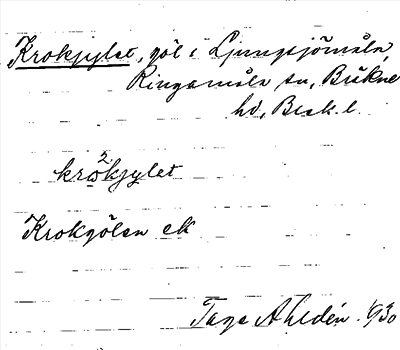 Krokjylet, göl i Ljungsjömåla,
Ringamåla sn, Bräkne
hd, Blek. l.
2
krokjylet
Krokgölen ek
Tage Ahldén. 1930